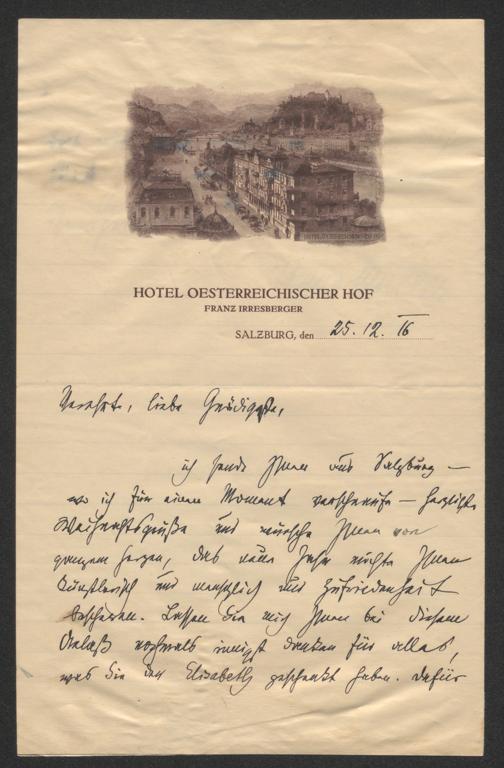 HOTEL OESTERREICHISCHER HOF
FRANZ IRRESBERGER
SALZBURG, den 25. 12. 16
Verehrte, liebe Gnädigste,
ich sende Ihnen aus Salzburg —
wo ich für einen Moment verschnaufe — herzliche
Weihnachtsgrüße und wünsche Ihnen von
ganzem Herzen, das neue Jahr möchte Ihnen
künstlerisch und menschlich nur Zufriedenheit
bescheren. Lassen Sie mich Ihnen bei diesem
Anlaß nochmals innigst danken für alles,
was Sie der Elisabeth geschenkt haben. Dafür